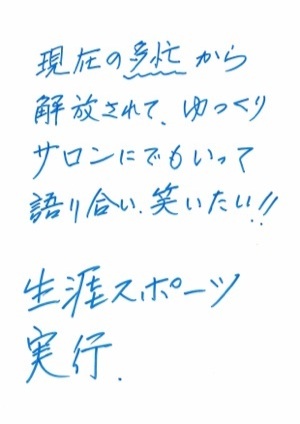 現在の多忙から
解放されて、ゆっくり
サロンにでもいって
語り合い、笑いたい!!
生涯スポーツ
実行.